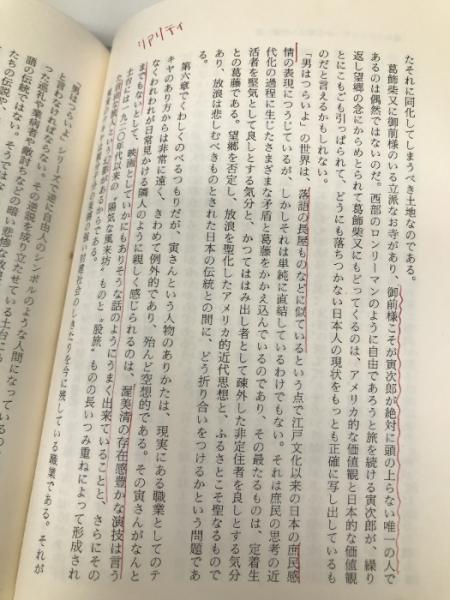 リアリティ
たそれに同化してしまうべき土地なのである。
葛飾柴又に御前様のいる立派なお寺があり、御前様こそが寅次郎が絶対に頭の上らない唯一の人で
あるのは偶然ではないのだ。西部のロンリーマンのように自由であろうと旅を続ける寅次郎が、繰り
返し望郷の念にからめとられて葛飾柴又にもどってくるのは、アメリカ的な価値観と日本的な価値観
とにこもごも引っぱられて、どうにも落ちつかない日本人の現状をもっとも正確に写し出しているも
のだと言えるかもしれない。
「男はつらいよ」の世界は、落語の長屋ものなどに似ているという点で江戸文化以来の日本の庶民感
情の表現につうじているが、しかしそれは単純に直結しているわけでもない。それは庶民の思考の近
代化の過程に生じたさまざまな矛盾と葛藤をかかえ込んでいるのであり、その最たるものは、定着生
活者を堅気として良しとする気分と、かつてははみ出し者として疎外した非定住者を良しとする気分
との葛藤である。望郷を否定し、放浪を聖化したアメリカ的近代思想と、ふるさとこそ聖なるもので
あり、放浪は悲しむべきものとされた日本の伝統との間に、どう折り合いをつけるかという問題であ
る。
第六章でくわしくのべるつもりだが、寅さんという人物のありかたは、現実にある職業としてのテ
キヤのあり方からは非常に遠く、きわめて例外的であり、殆んど空想的である。その寅さんがなんと
なくわれわれが日常見かける隣人のように親しく感じられるのは、渥美清の存在感豊かな演技は言う
までもないとして、映画としていかにもありそうな話のようにうまく出来ていることと、さらにその
土台には一九二〇年代以来の〝陽気な風来坊〟ものと〝股旅〟ものの長いつみ重ねによって形成され
しきたりを今に残している職業である。それが
「男はつらいよ」シリーズで逆に自由人のシンボルのような人間になっている
と言わなければならない。その逆説を成り立たせている土台